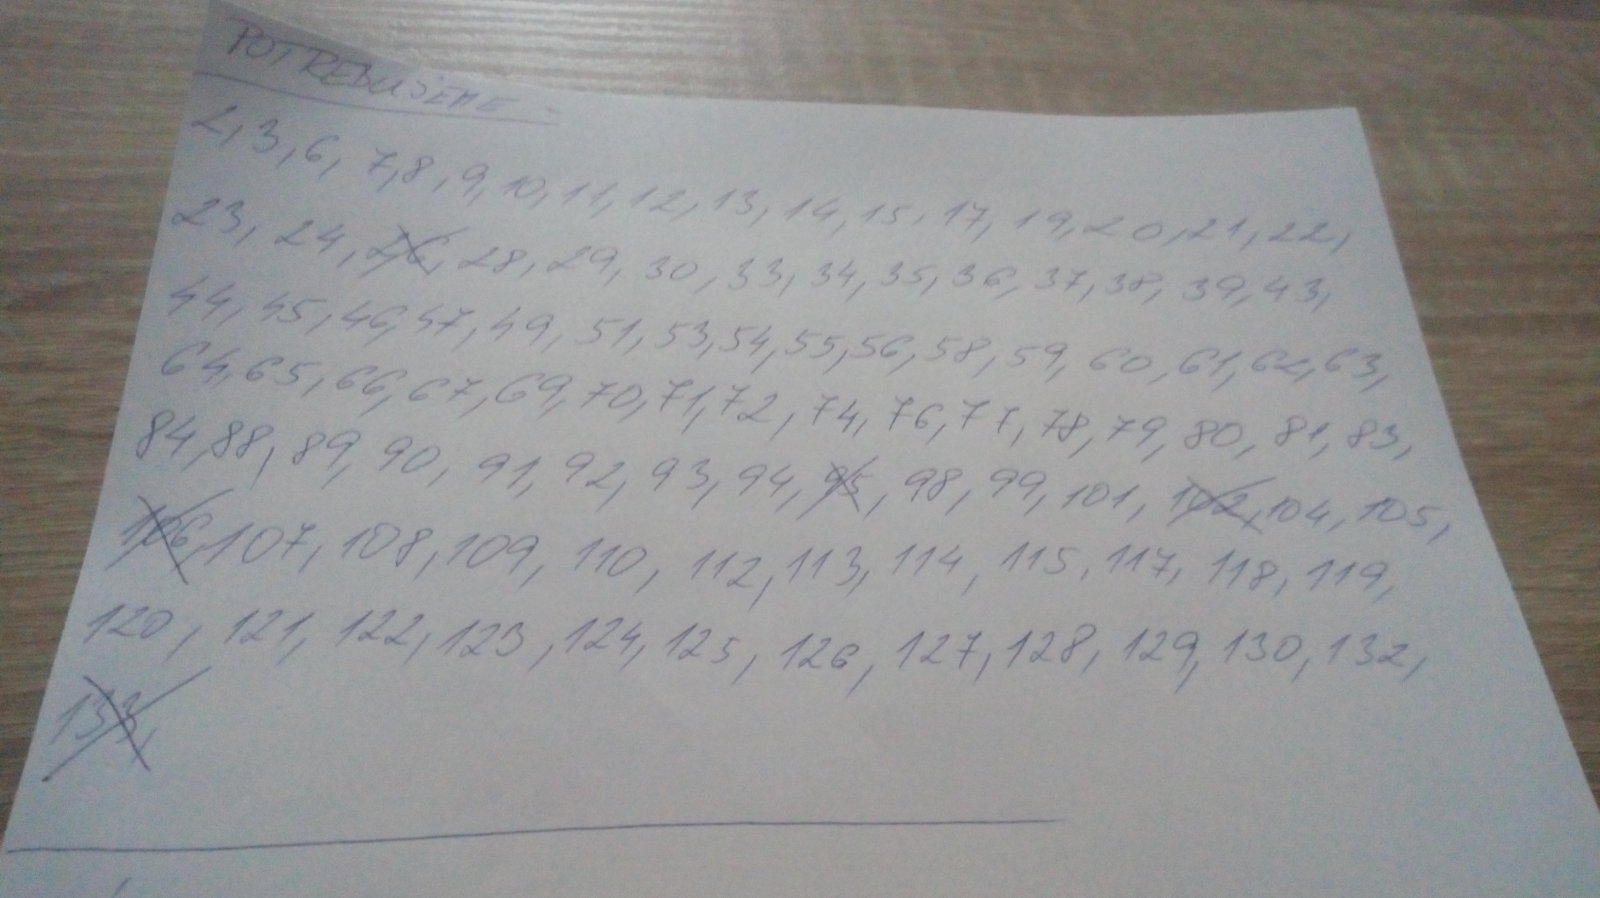 POTREBUJEME:
2, 3, 6, 7, 8, 9, 10, 11, 12, 13, 14, 15, 17, 19, 20, 21, 22,
23, 24, 26, 28, 29, 30, 33, 34, 35, 36, 37, 38, 39, 43,
44, 45, 46, 47, 49, 51, 53, 54, 55, 56, 58, 59, 60, 61, 62, 63,
64, 65, 66, 67, 69, 70, 71, 72, 74, 76, 77, 78, 79, 80, 81, 83,
84, 88, 89, 90, 91, 92, 93, 94, 95, 98, 99, 101, 102, 104, 105,
106, 107, 108, 109, 110, 112, 113, 114, 115, 117, 118, 119,
120, 121, 122, 123, 124, 125, 126, 127, 128, 129, 130, 132,
133,